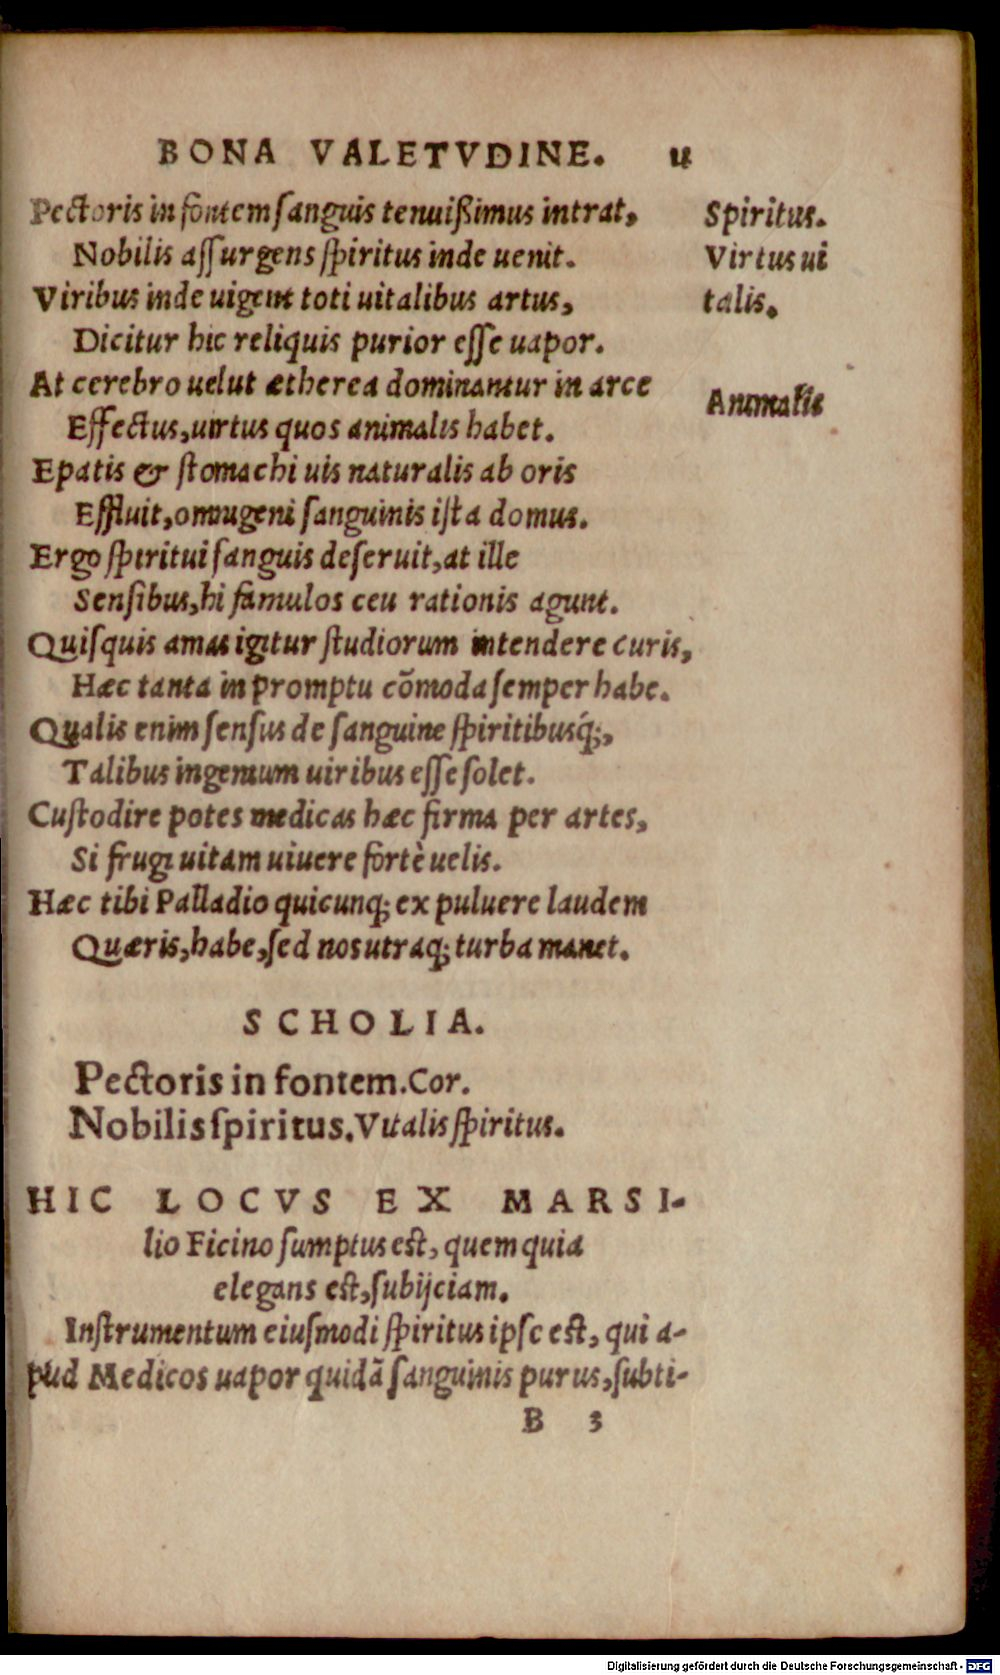 BONA VALETVDINE. 11
Pectoris in fontem sanguis tenuißimus intrat,
Nobilis assurgens spiritus inde uenit.
Viribus inde uigent toti uitalibus artus,
Dicitur hic reliquis purior esse uapor.
At cerebro uelut ætherea dominantur in arce
Effectus, uirtus quos animalis habet.
Epatis & stomachi uis naturalis ab oris
Effluit, omnugeni sanguinis ista domus.
Ergo spiritui sanguis deseruit, at ille
Sensibus, hi famulos ceu rationis agunt.
Quisquis amas igitur studiorum intendere curis,
Hæc tanta in promptu cõmoda semper habe.
Qualis enim sensus de sanguine spiritibusq́;,
Talibus ingenium uiribus esse solet.
Custodire potes medicas hæc firma per artes,
Si frugi uitam uiuere fortè uelis.
Hæc tibi Palladio quicunq; ex puluere laudem
Quæris, habe, sed nos utraq; turba manet.
Spiritus.
Virtus ui
talis.
Animalis
SCHOLIA.
Pectoris in fontem. Cor.
Nobilis spiritus. Vitalis spiritus.
HIC LOCVS EX MARSI-
lio Ficino sumptus est, quem quia
elegans est, subijciam.
Instrumentum eiusmodi spiritus ipse est, qui a-
pud Medicos uapor quidã sanguinis purus, subti-
B 3
Digitalisierung gefördert durch die Deutsche Forschungsgemeinschaft - DFG